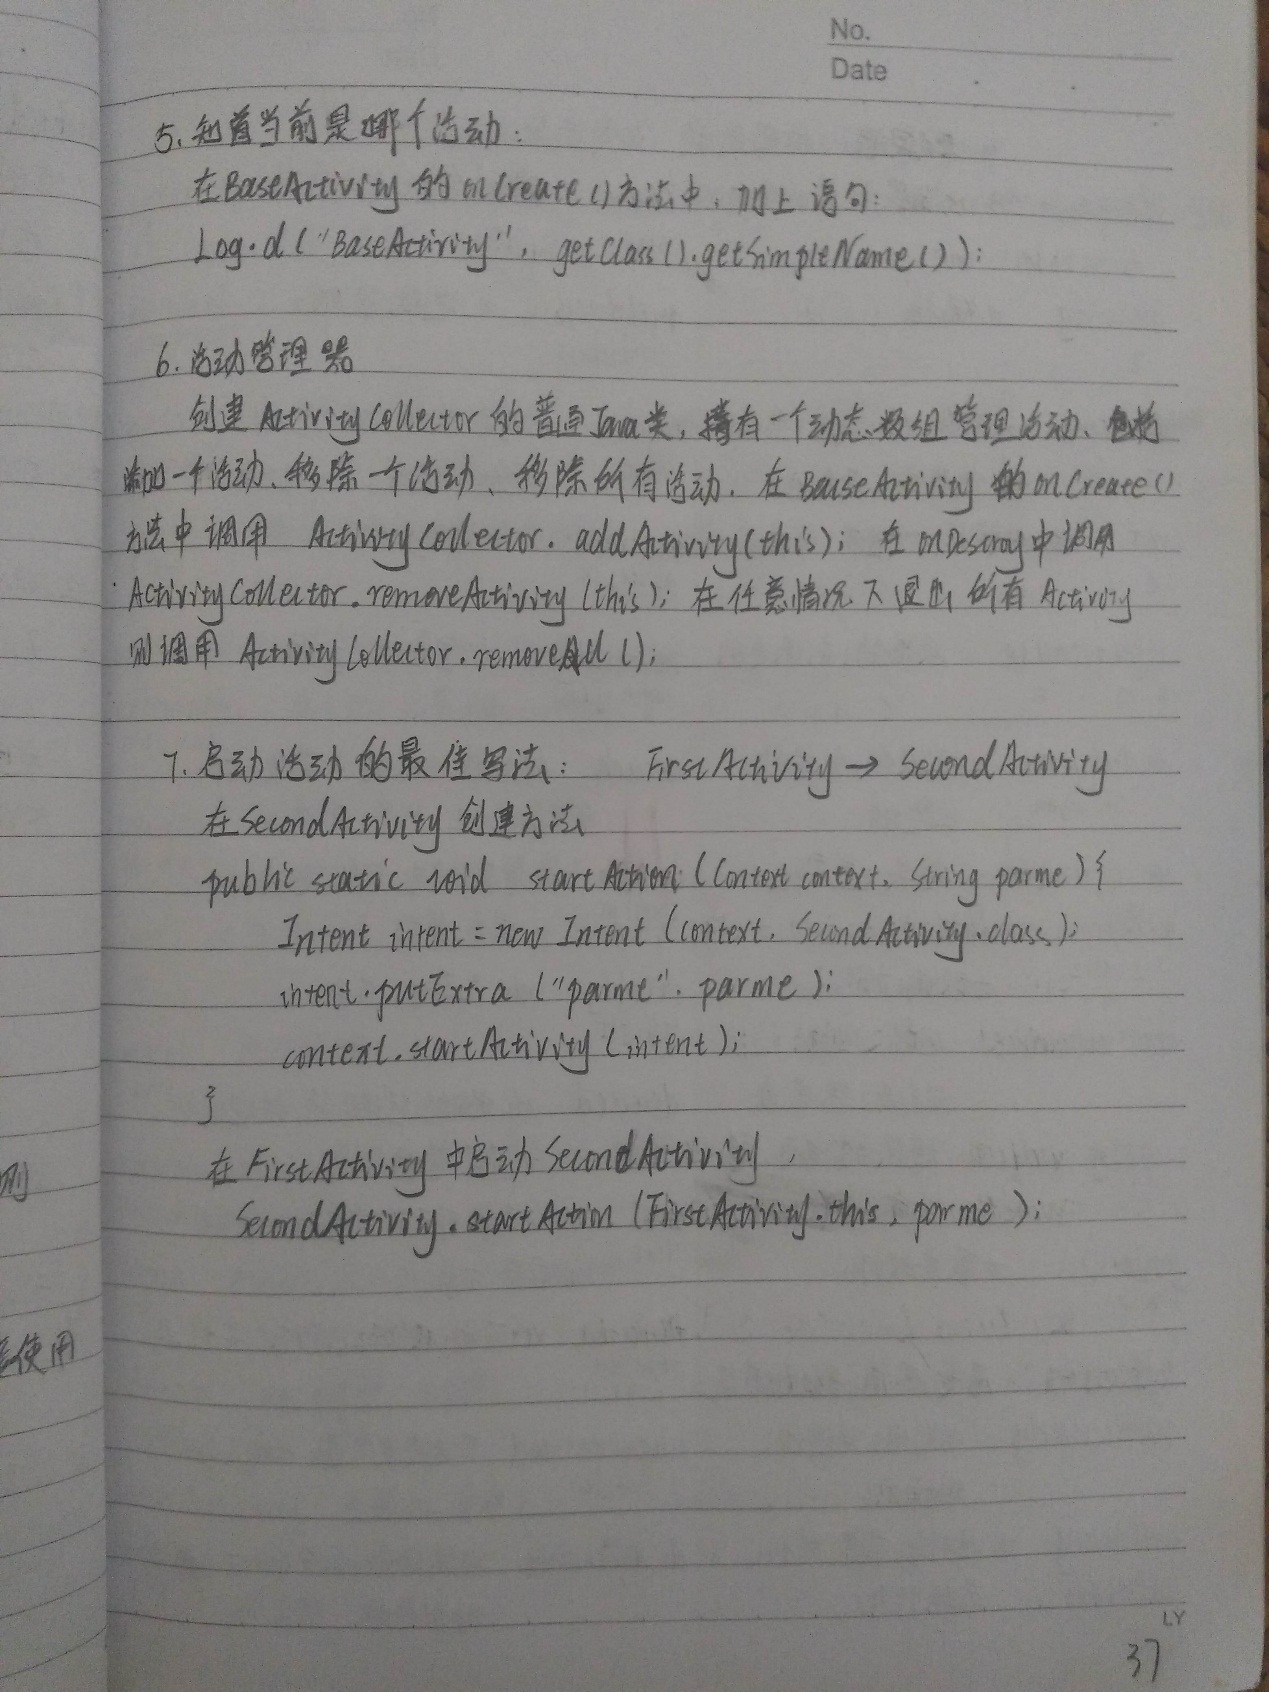 No.
Date
5. 知道当前是哪个活动:
在BaseActivity 的 onCreate()方法中, 加上语句:
Log.d("BaseActivity", getClass().getSimpleName());
6. 活动管理器
创建 ActivityCollector 的普通Java类, 拥有一个动态数组管理活动、包括
添加一个活动、移除一个活动、移除所有活动. 在 BaseActivity 的 onCreate()
方法中调用 ActivityCollector.addActivity(this); 在 onDestroy中调用
ActivityCollector.removeActivity(this); 在任意情况下退出所有 Activity
则调用 ActivityCollector.removeAll();
7. 启动活动的最佳写法: FirstActivity → SecondActivity
在SecondActivity 创建方法
public static void startAction(Context context, String parme){
Intent intent = new Intent (context, SecondActivity.class);
intent.putExtra ("parme", parme);
context.startActivity(intent);
}
在 FirstActivity 中启动 SecondActivity,
SecondActivity.startAction (FirstActivity.this, parme);
则
使用
LY
37